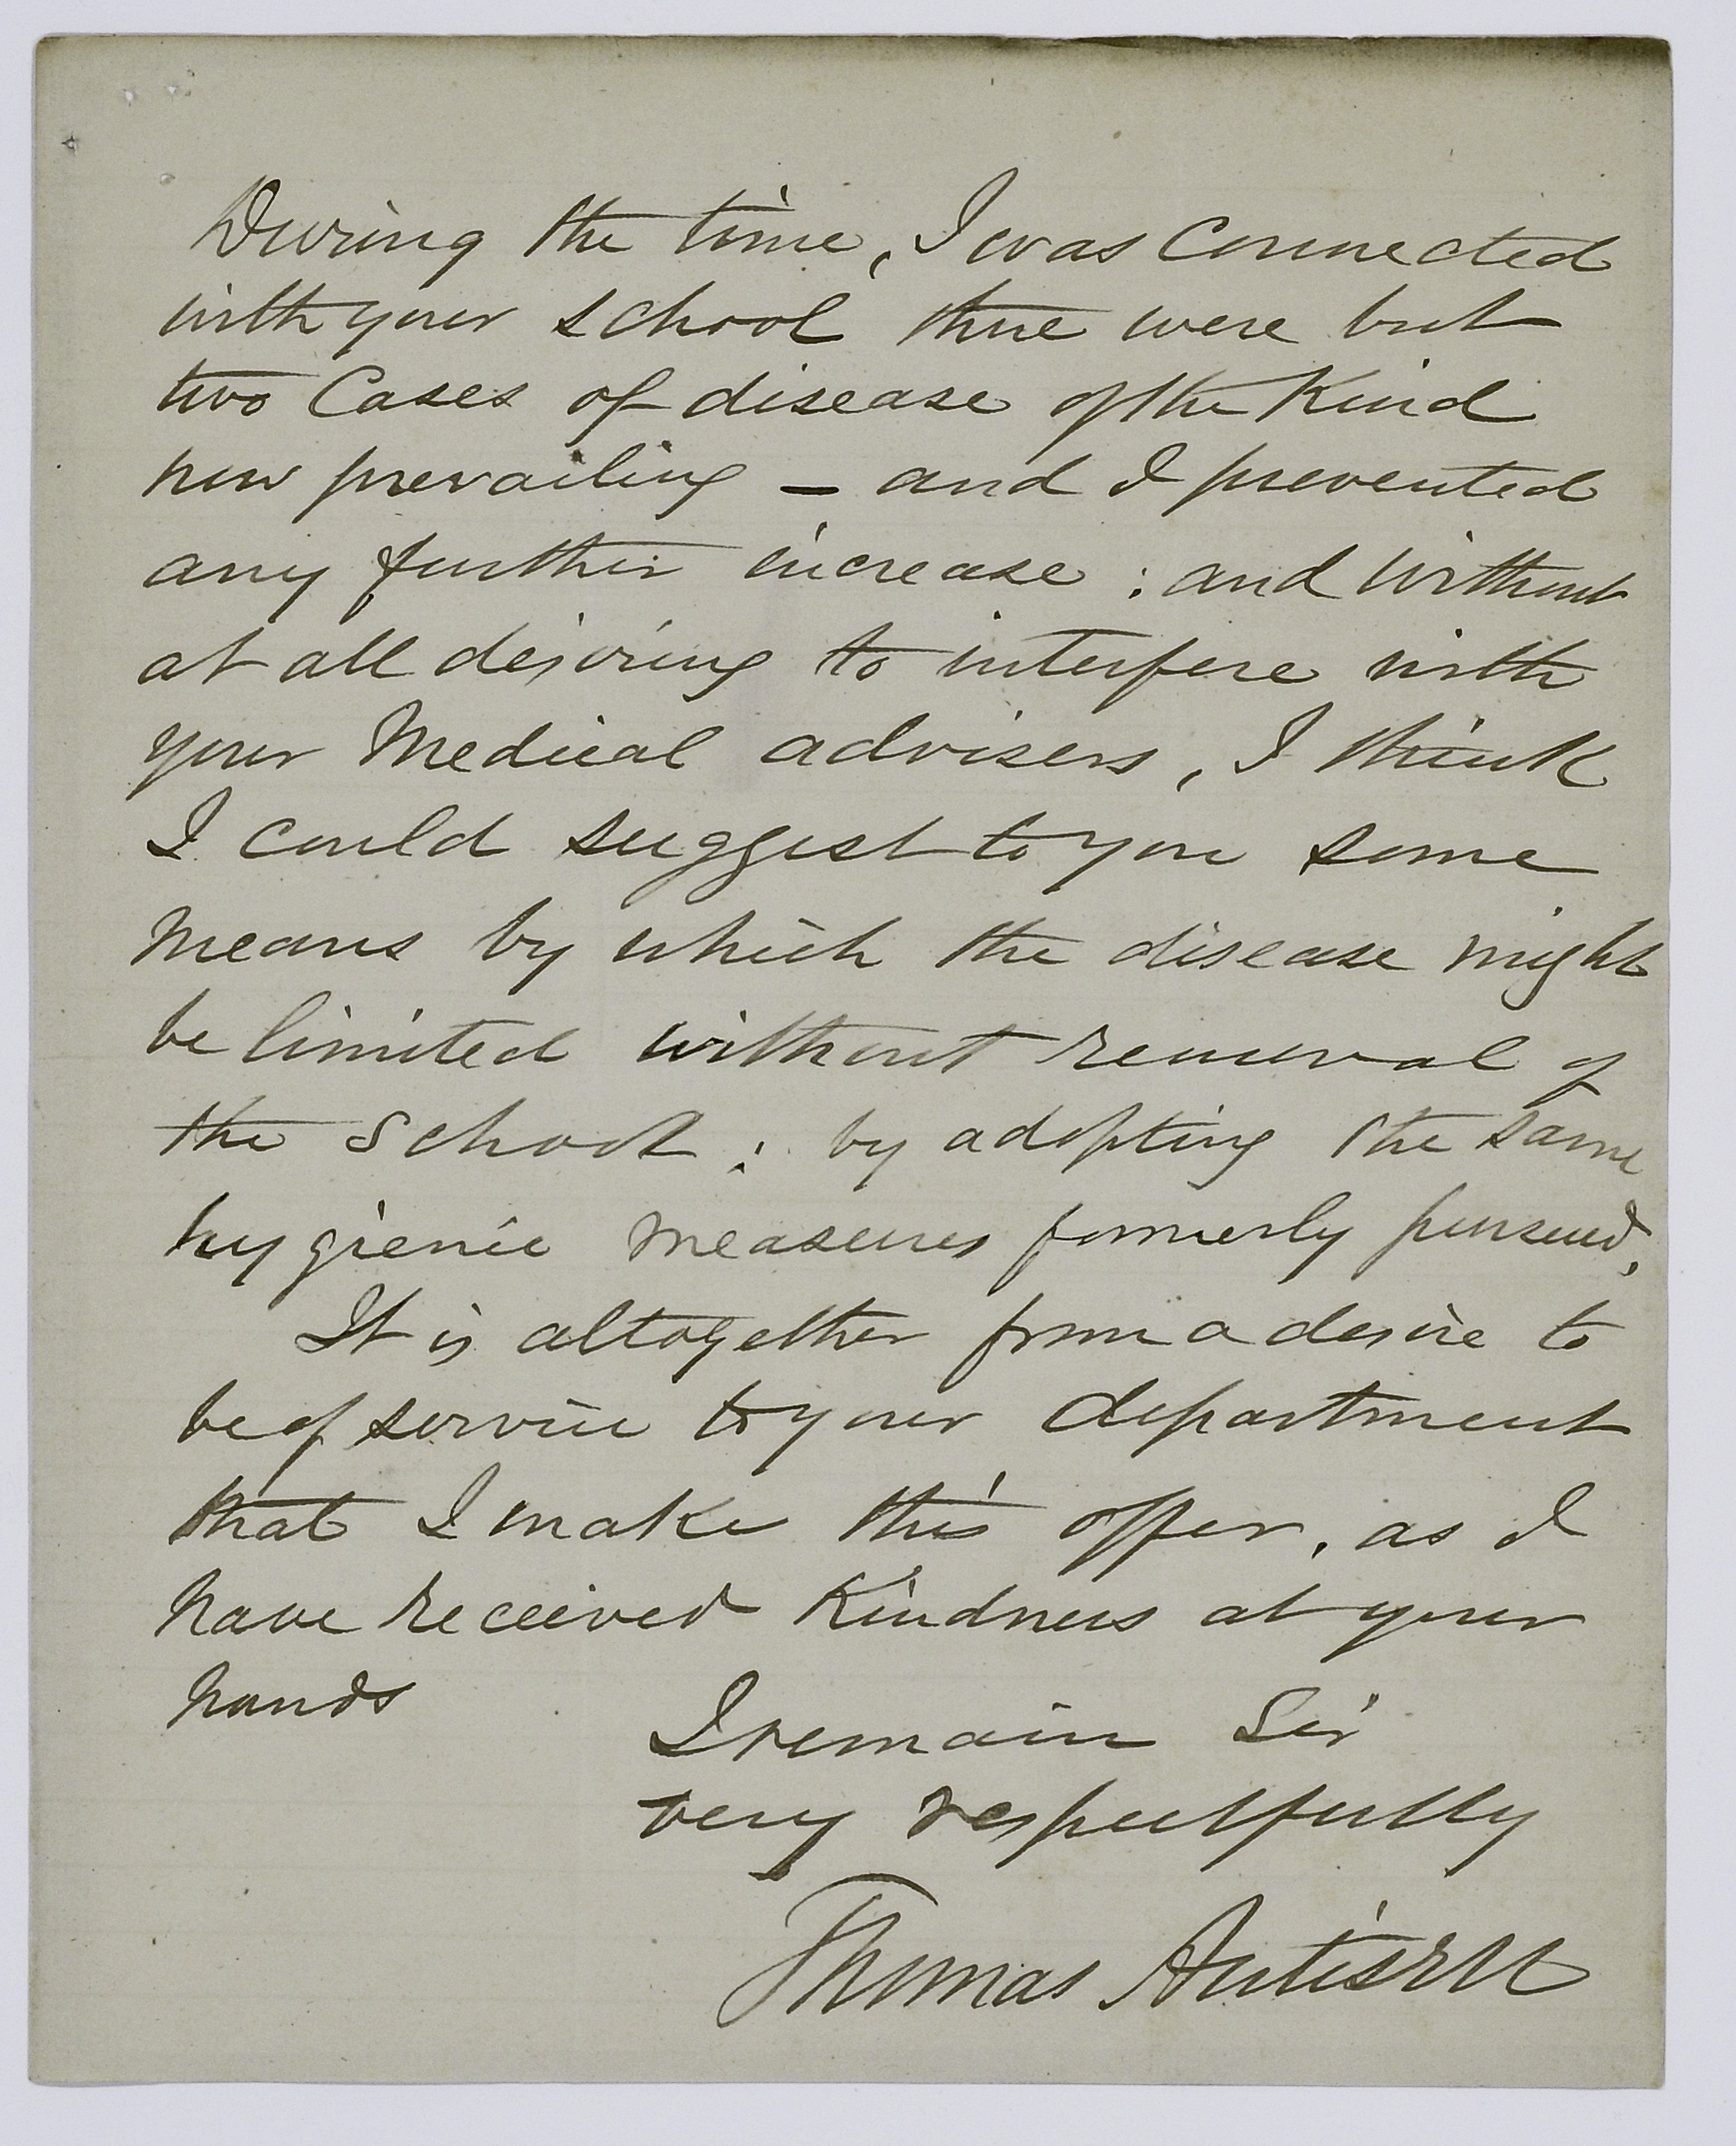 During the time, I was connected
with your school there were but
two Cases of disease of the Kind
now prevailing — and I prevented
any further increase : and without
at all desiring to interfere with
your Medical advisers, I think
I could suggest to you some
means by which the disease might
be limited without removal of
the School ; by adopting the same
hygienic measures formerly pursued,
It is altogether from a desire to
be of service to your department
that I make this offer, as I
have received Kindness at your
hands
I remain Sir
very respectfully
Thomas Antisell